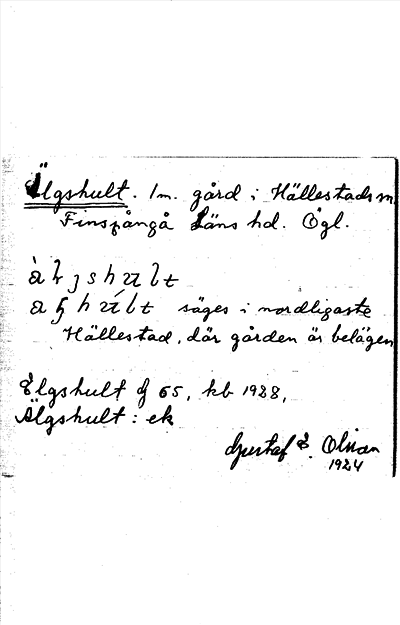 Älgshult. 1 m. gård i Hällestads sn
Finspånga Läns hd. Ögl.
säges i nordligaste
Hällestad, där gården är belägen
Elgshult dj 65, kb 1928,
Älgshult: ek
Gustaf E. Olman
1924